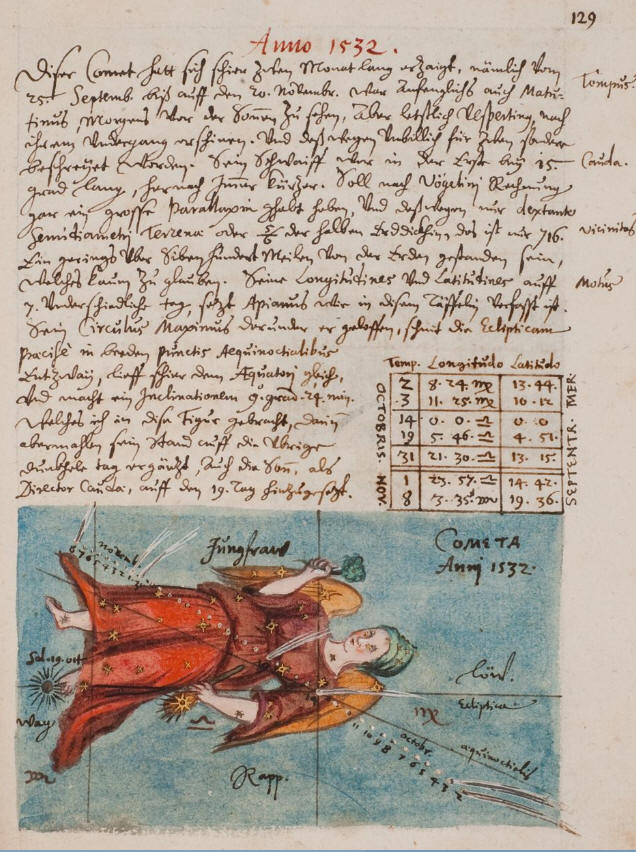 129
Anno 1532.
Diser Comet hatt sich schier zwen Monat lang erzaigt, nämlich vom
25. Septemb. biß auff den 20. Novembr. war Anfenglichs auch Matu-
tinus, Morgens vor der Sonnen zu sehen, Aber letstlich Vespertinus, nach
ihrem Undergang erschinen. Und deßwegen Unbillich für zwen
beschreyet worden. Sein Schwaiff war in der Erst bey 15.
grad lang, hernach Immer kürzer. Soll nach Vögelini Rechnung
gar ein grosse Parallaxin ghabt haben, Und deßwegen nur dextante
Semidiametri Terrena oder 5/6 der halben Erddickhin, das ist nur 716.
Ein gerings Über Siben hundert Meilen von der Erden gestanden sein,
welches kaum zu glauben. Seine Longitudines Und Latitudines auff
7. Underschiedliche tag, setzt Apianus wie in disem Täffelin verfasst ist.
Sein Circulus Maximus darunder er geloffen, schnit die Eclipticam
Præcisè in beeden punctis Aequinoctialibus
Entzway, lieff schier dem Aequatori gleich,
Und macht ein Inclinationem 9. grad. 24. min.
Welches ich in dise Figur gebracht, dann
abermahlen sein Stand auff die Übrige
dunckhele tag ergäntzt, Auch die Son, als
Director Caudæ, auff den 19. Tag hinzugesetzt.
Tempus.
Cauda.
Vicinitas
Motus
Temp. Longitudo Latitudo
OCTOBRIS.
2 8. 24. ♍ 13. 44.
3 11. 25. ♍ 10. 12
14 0. 0. ♎ 0. 0
19 5. 46. ♎ 4. 51.
31 21. 30. ♎ 13. 15.
NOV.
1 23. 57. ♎ 14. 42.
8 3. 35. ♏ 19. 36.
SEPTENTR. MER
COMETA
Anni 1532.
Jungfraw
novemb.
8 7 6 5 4 3 2 1
Sol. 19. oct
Way
♏
♎
Rapp.
Löw.
Ecliptica
♍
octobr.
æquinoctialis
11 10 9 8 7 6 5 4 3 2